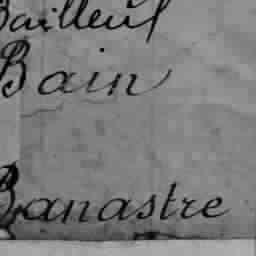 Bailleul
Bain
Banastre